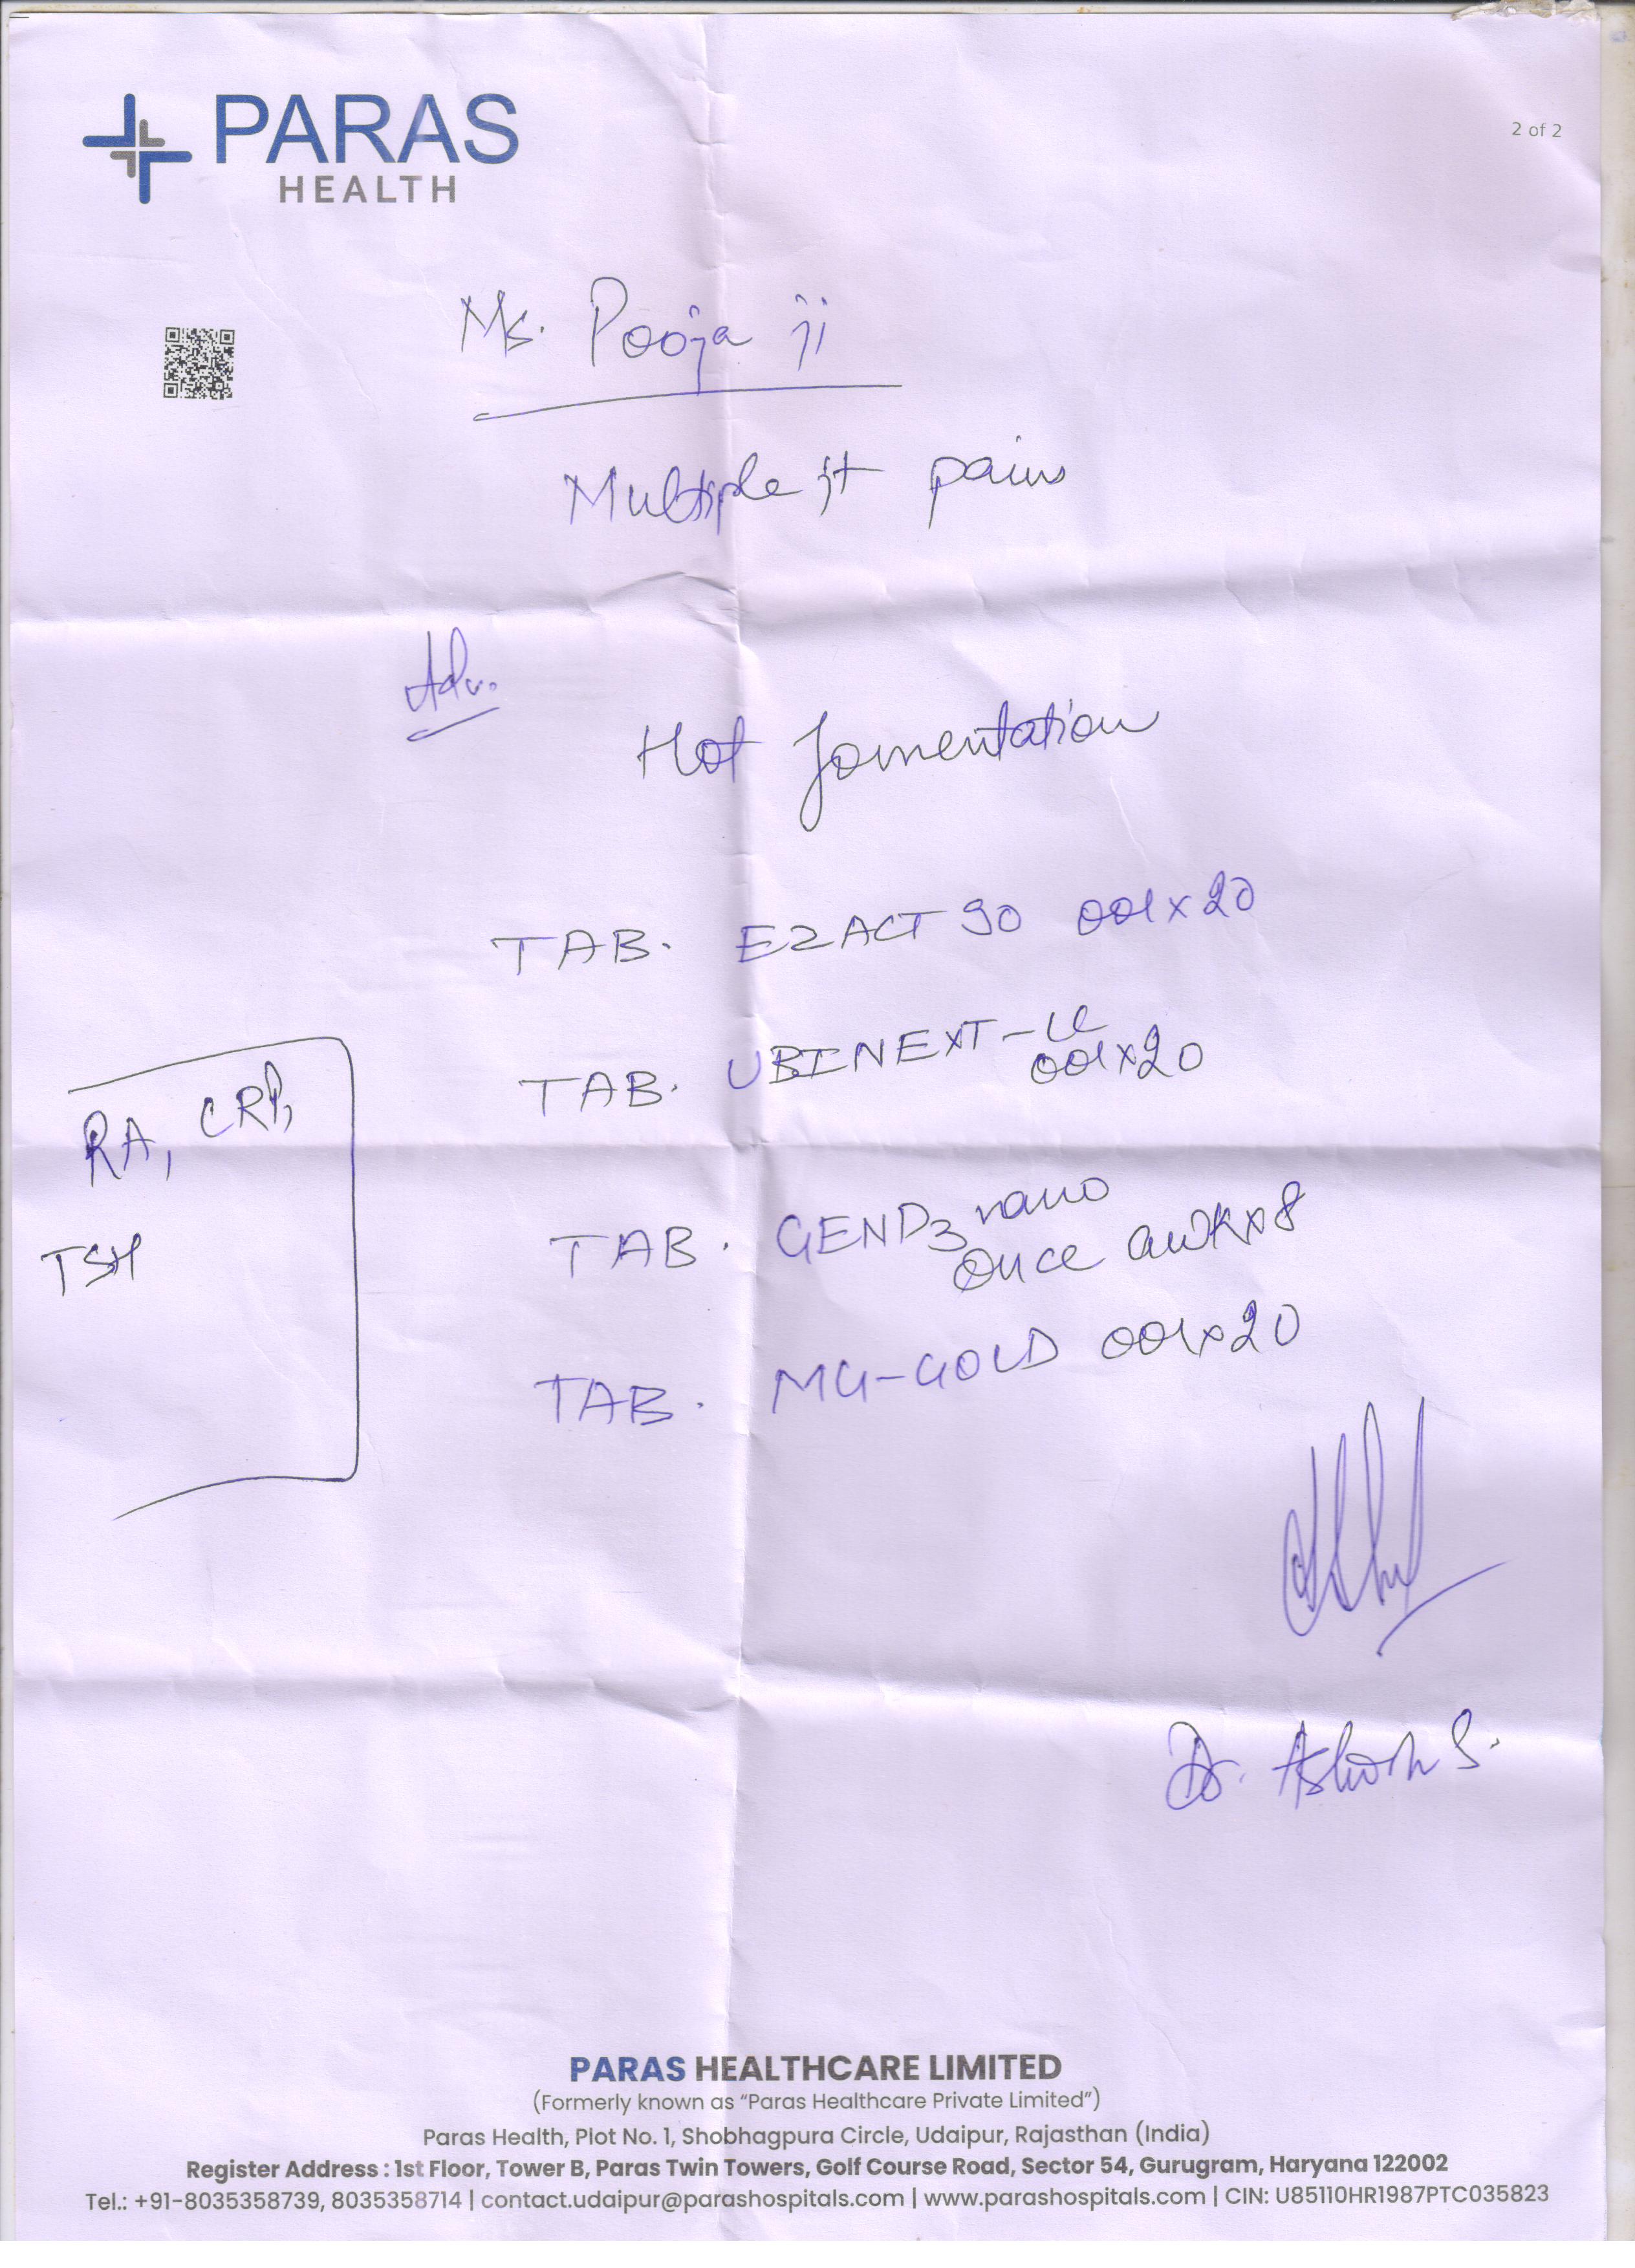 PARAS
HEALTH
2 of 2
Ms. Pooja ji
Multiple jt pains
Adv.
Hot fomentation
TAB. EZACT 90 001x20
TAB. UBINEXT-LC
001x20
RA, CRP,
TSH
TAB. GEND3 nano
once a wk x 8
TAB. MG-GOLD 001x20
Dr. Ashish S.
PARAS HEALTHCARE LIMITED
(Formerly known as “Paras Healthcare Private Limited”)
Paras Health, Plot No. 1, Shobhagpura Circle, Udaipur, Rajasthan (India)
Register Address : 1st Floor, Tower B, Paras Twin Towers, Golf Course Road, Sector 54, Gurugram, Haryana 122002
Tel.: +91-8035358739, 8035358714 | contact.udaipur@parashospitals.com | www.parashospitals.com | CIN: U85110HR1987PTC035823